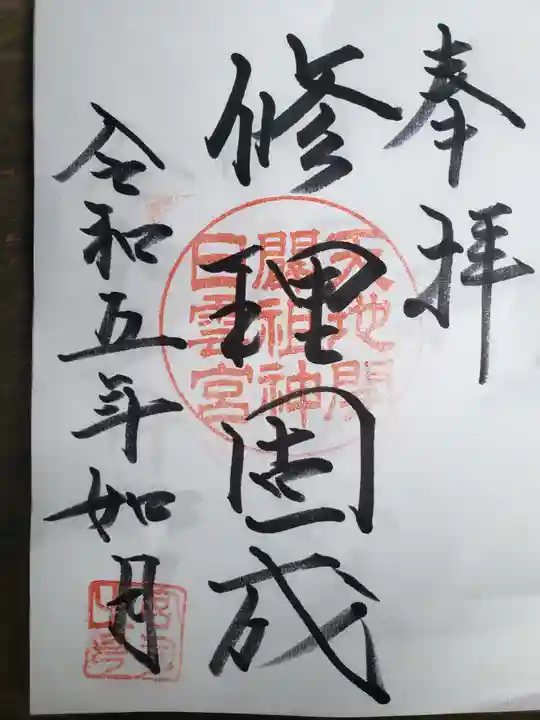 奉拝
修理固成
令和五年如月
天地開
闢祖神
日雲宮